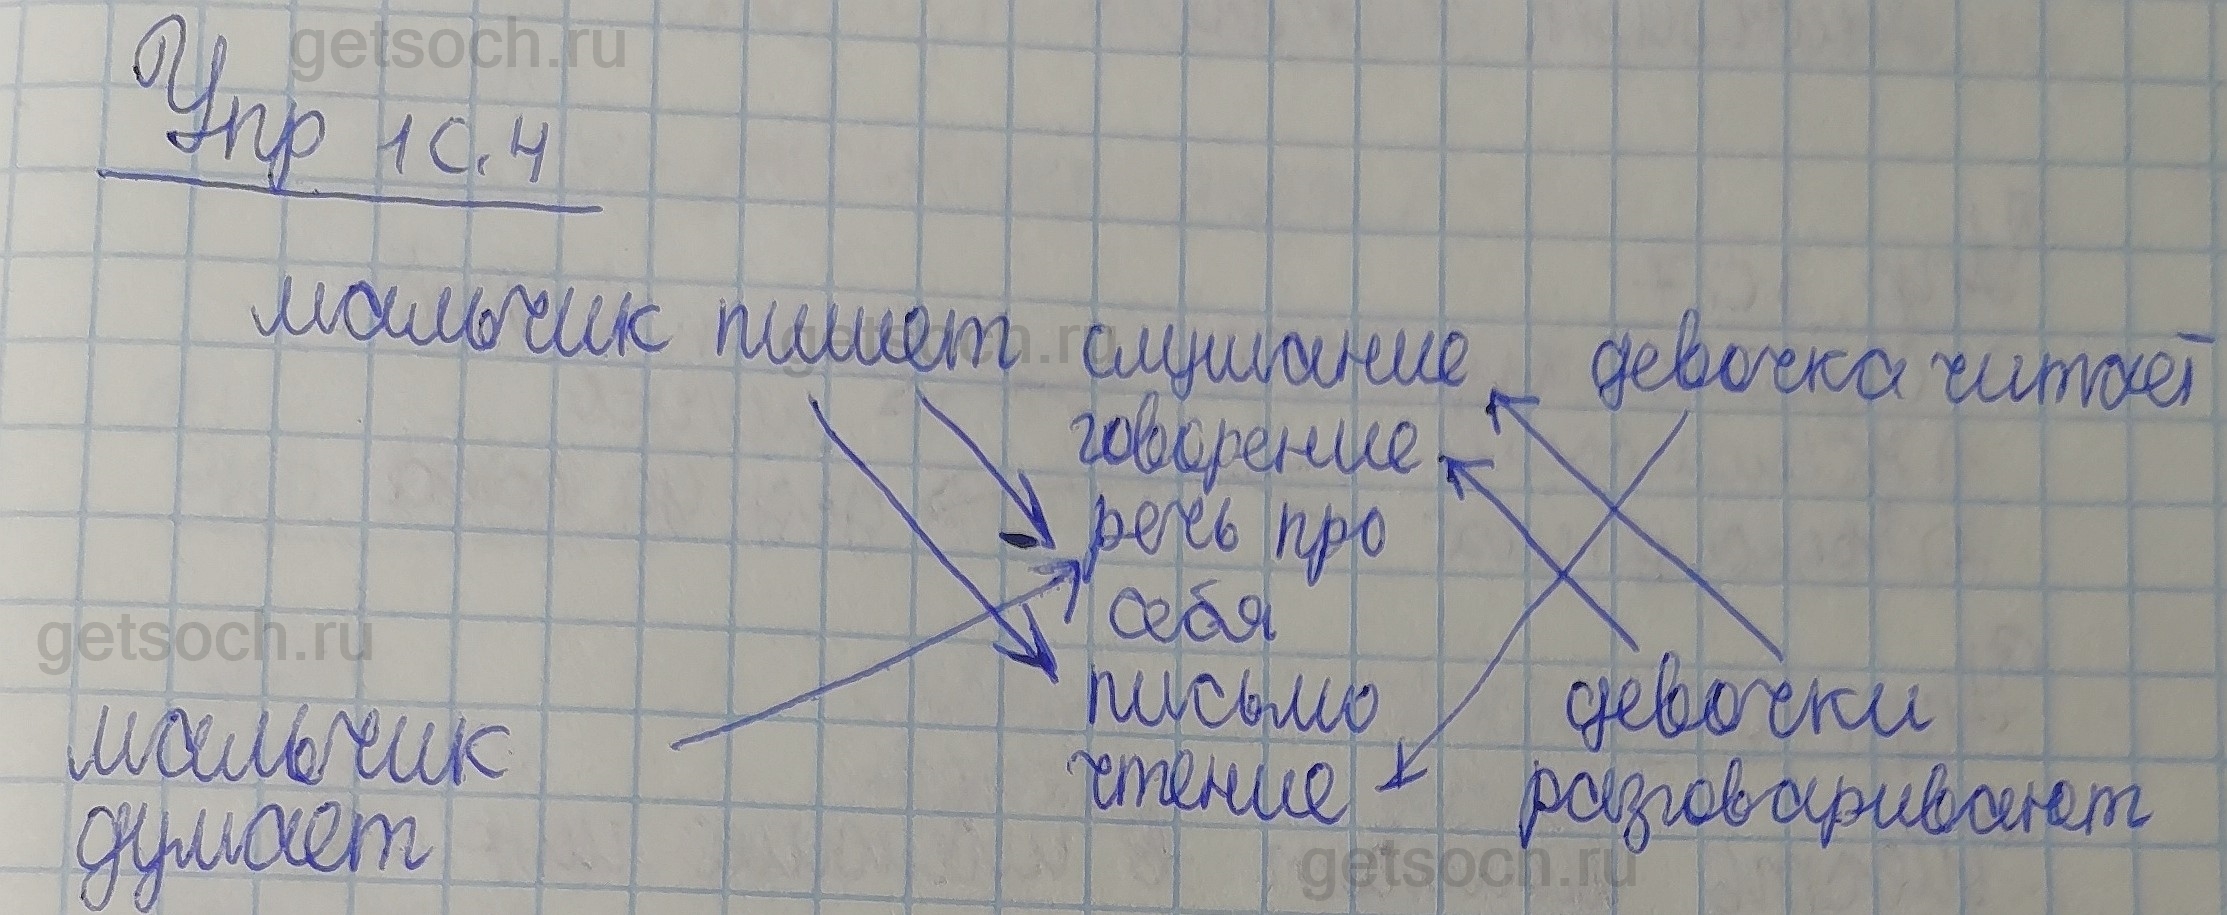 getsoch.ru
Упр 1 С. 4
мальчик пишет слушание девочка читает
getsoch.ru
говорение
речь про
себя
getsoch.ru
письмо девочки
мальчик чтение разговаривают
думает
getsoch.ru